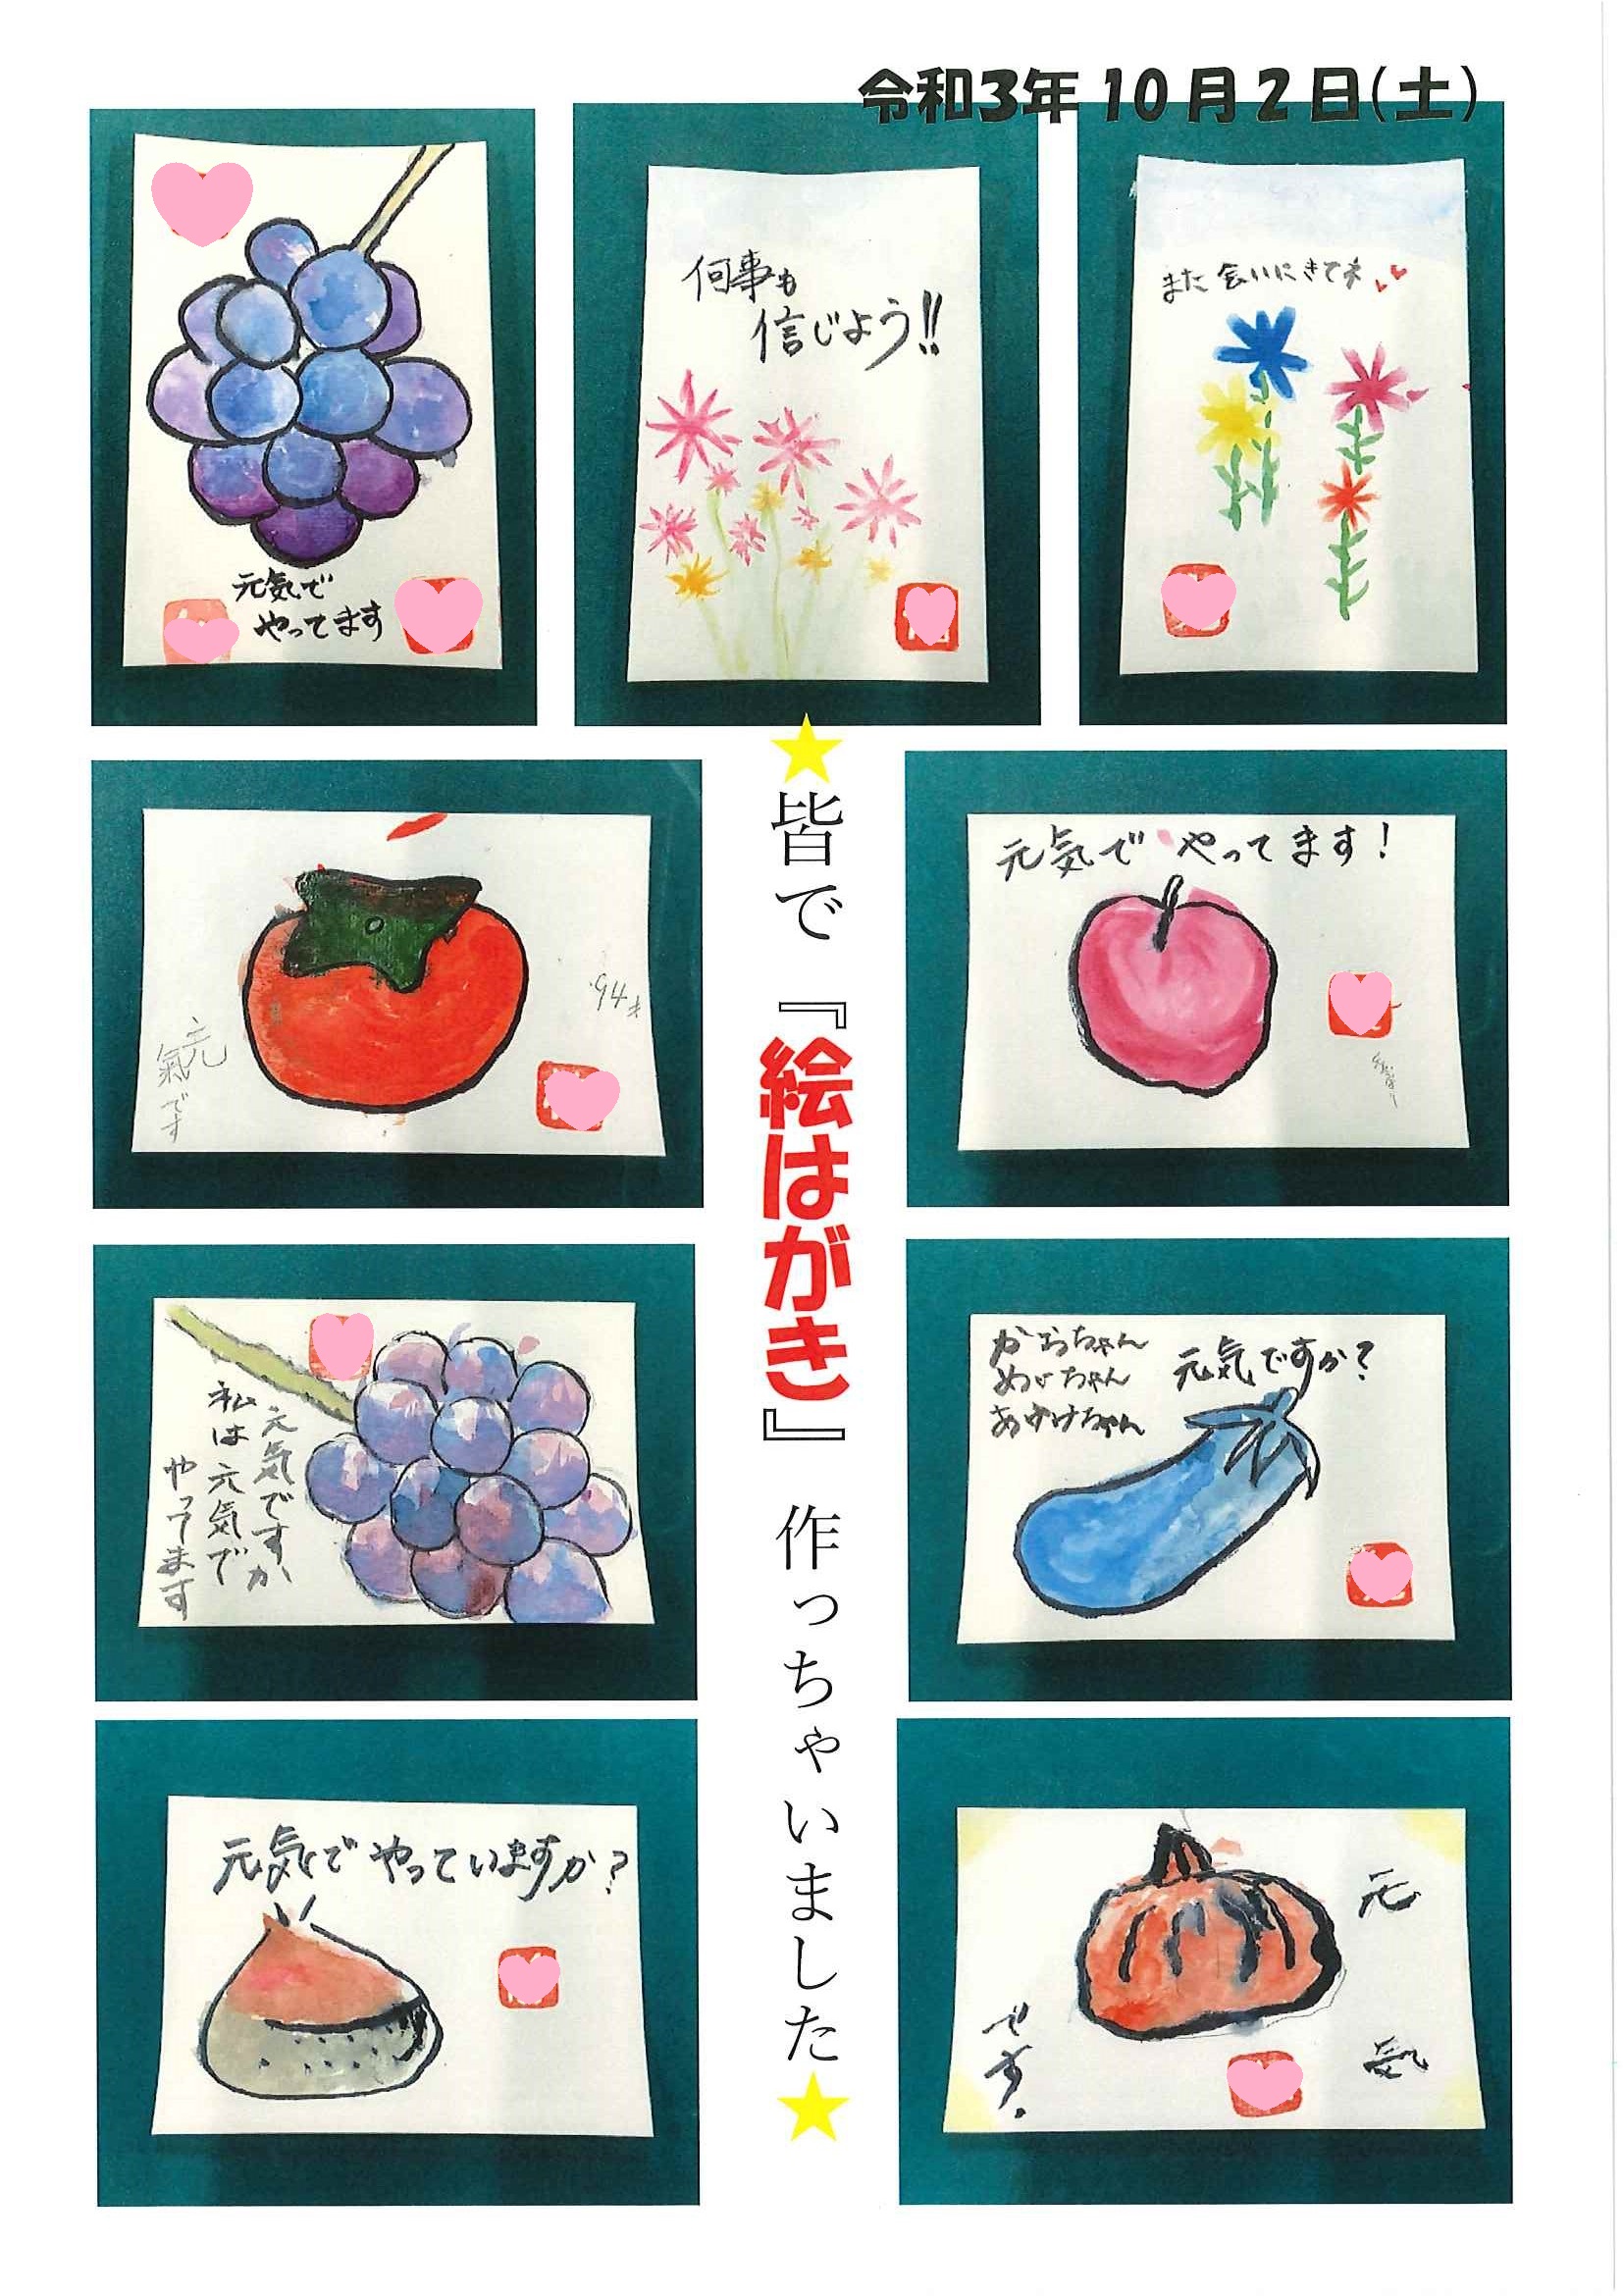 令和3年10月2日(土)
元気で
やってます
何事も
信じよう!!
また会いにきてネ
★皆で『絵はがき』作っちゃいました★
94才
元
氣です
元気でやってます!
元気ですか
私は元気で
やってます
かおちゃん
めいちゃん
あゆけちゃん
元気ですか?
元気でやっていますか?
元
気
です.